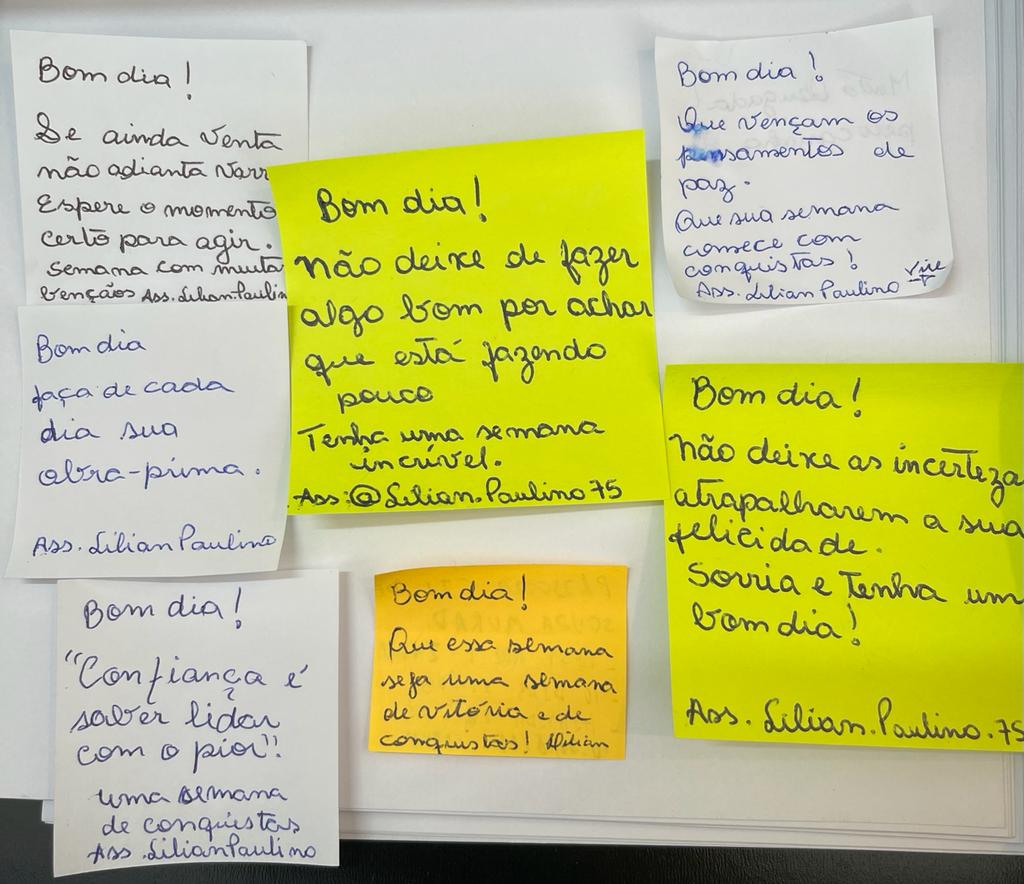 Bom dia!
Se ainda venta
não adianta varr
Espere o momento
certo para agir.
semana com muita
bençãos Ass. Lilian.Paulin
Bom dia
faça de cada
dia sua
obra-prima.
Ass. Lilian Paulino
Bom dia!
"Confiança é
saber lidar
com o pior"!
uma semana
de conquistas
Ass. Lilian Paulino
Bom dia!
não deixe de fazer
algo bom por achar
que está fazendo
pouco
Tenha uma semana
incrível.
Ass: @Lilian.Paulino75
Bom dia!
Que essa semana
seja uma semana
de vitória e de
conquistas! Lilian
Bom dia!
Que vençam os
pensamentos de
paz.
Que sua semana
comece com
conquistas!
Ass. Lilian Paulino Vire
Bom dia!
não deixe as incerteza
atrapalharem a sua
felicidade.
Sorria e Tenha um
bom dia!
Ass. Lilian.Paulino.75